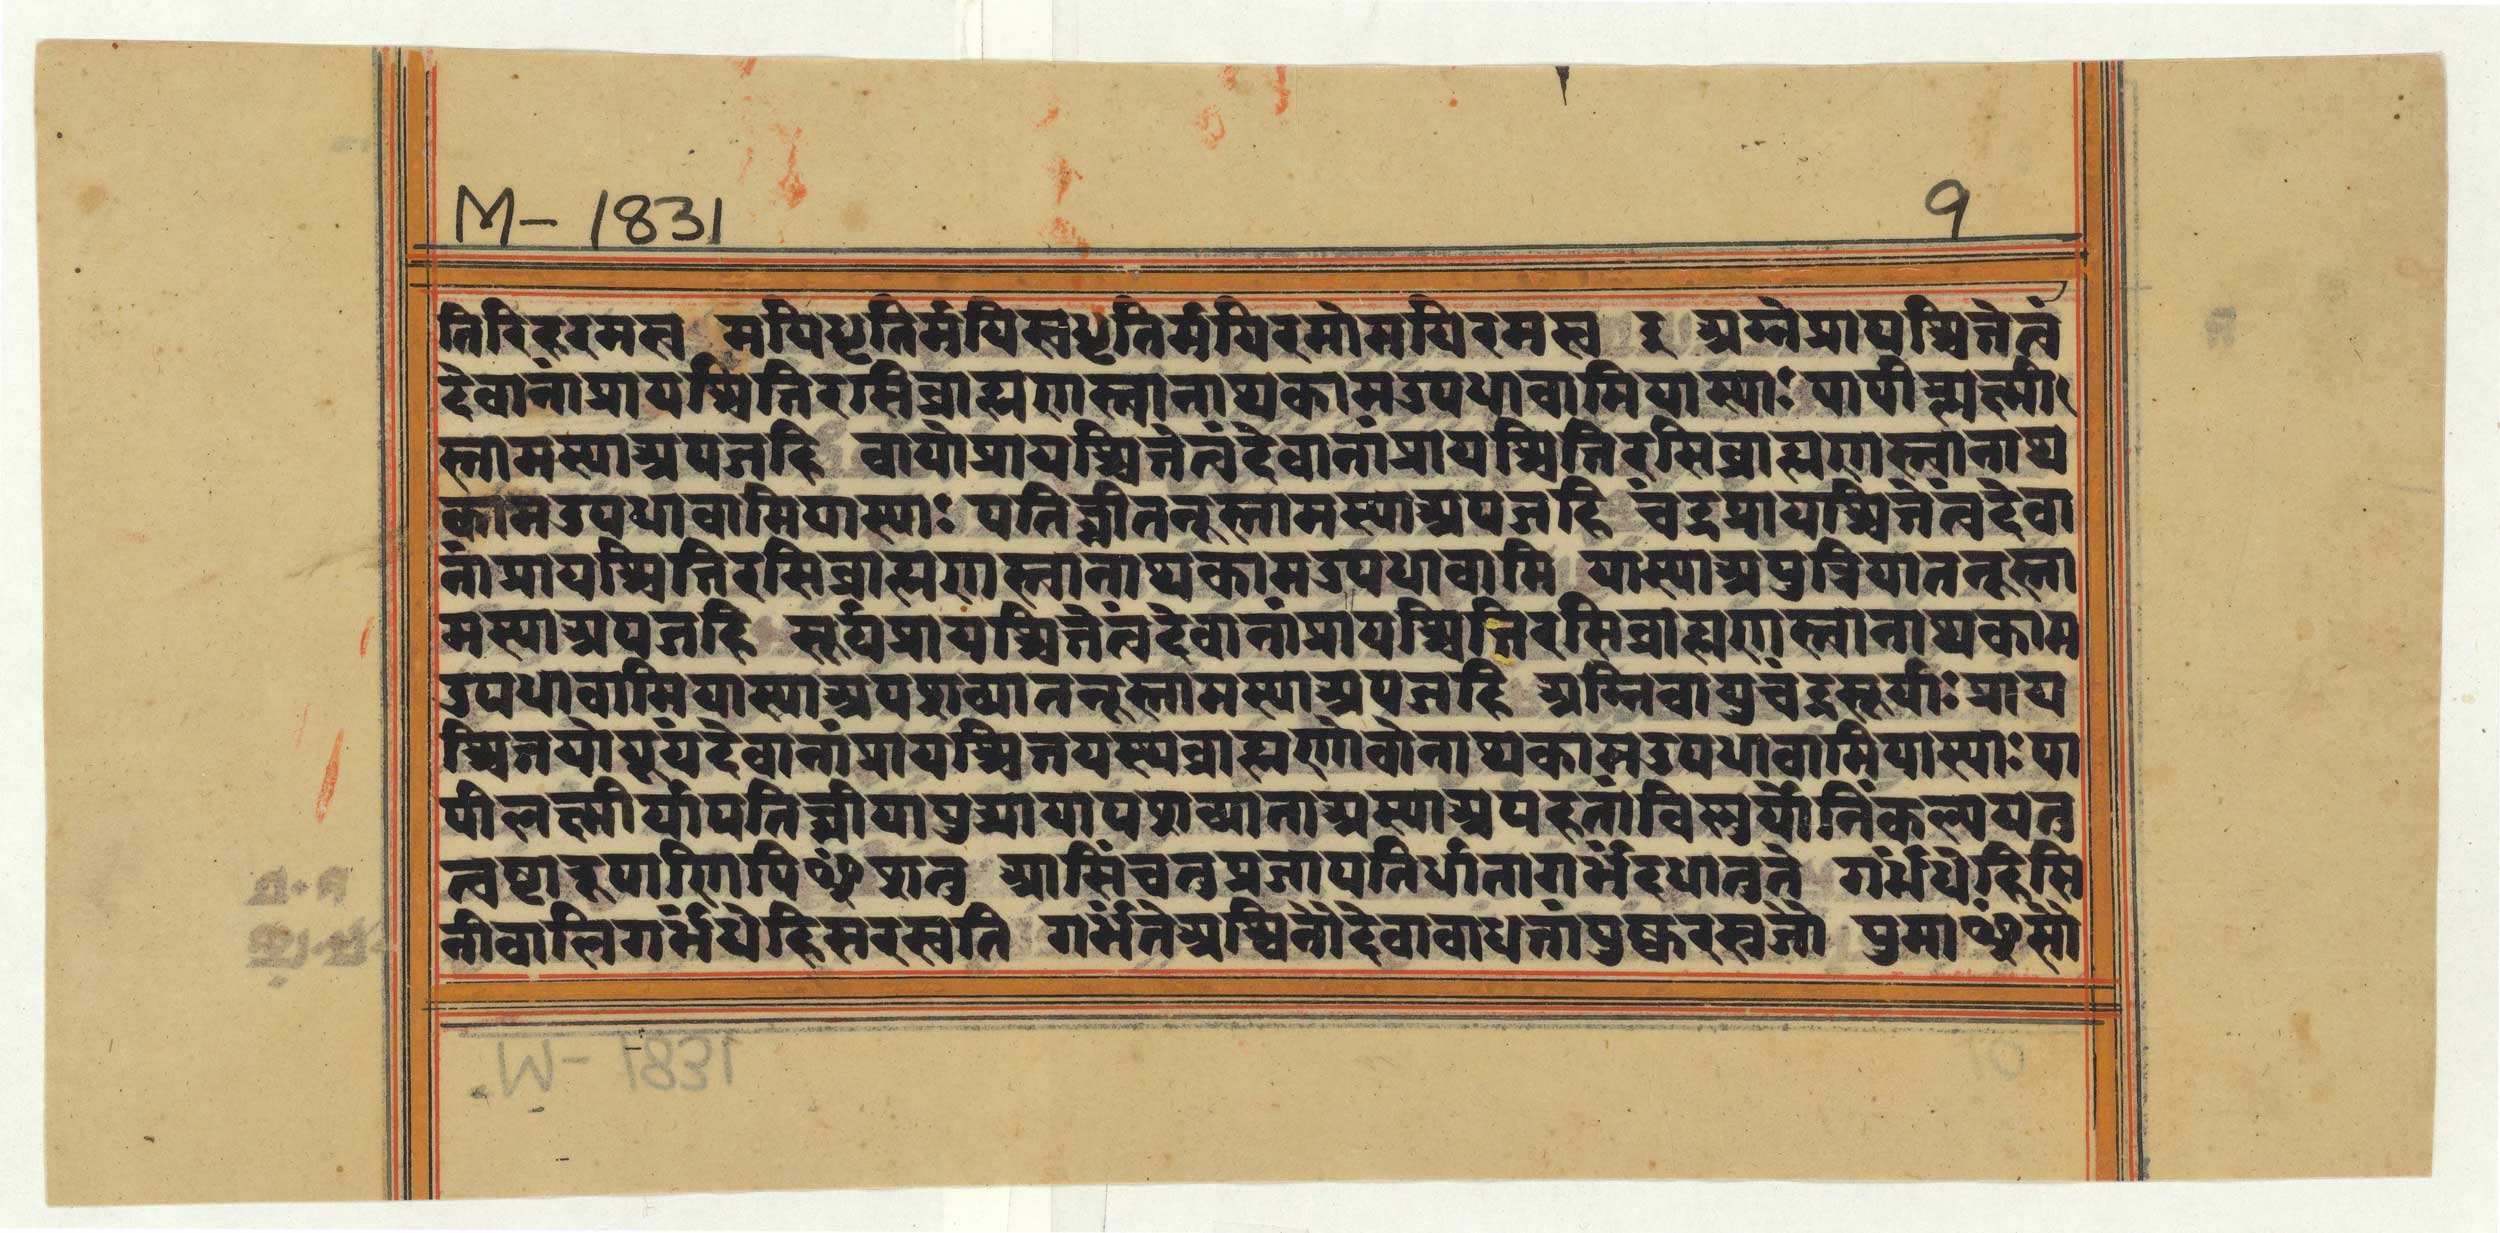 M- 1831 9
तिरिहरमस्व मयिधृतिर्मयिस्वधृतिर्मयिरमोमयिरमस्व ३ अग्नेप्रायश्चित्तेत्वं
देवानांप्रायश्चित्तिरसिब्राह्मणस्त्वानाथकामउपधावामियास्याः पापीलक्ष्मी
स्तामस्याअपजहि वायोप्रायश्चित्तेत्वंदेवानांप्रायश्चित्तिरसिब्राह्मणस्त्वानाथ
कामउपधावामियास्याः पतिघ्नीतनूस्तामस्याअपजहि चंद्रप्रायश्चित्तेत्वंदेवा
नांप्रायश्चित्तिरसिब्राह्मणस्त्वानाथकामउपधावामि यास्याअपुत्रियातनूस्ता
मस्याअपजहि सूर्यप्रायश्चित्तेत्वंदेवानांप्रायश्चित्तिरसिब्राह्मणस्त्वानाथकाम
उपधावामियास्याअपशव्यातनूस्तामस्याअपजहि अग्निवायुचंद्रसूर्याः प्राय
श्चित्तयोयूयंदेवानांप्रायश्चित्तयस्थब्राह्मणोवोनाथकामउपधावामियास्याः पा
पीलक्ष्मीर्यापतिघ्नीयापुत्र्यायापशव्याताअस्याअपहतांविस्नुर्योनिंकल्पयतु
त्वष्टारूपाणिपिꣳशतु आसिंचतुप्रजापतिर्धातागर्भंदधातुते गर्भंधेहिसि
नीवालिगर्भंधेहिसरस्वति गर्भंतेअश्विनौदेवावाधत्तांपुष्करस्रजौ पुमाꣳसौ